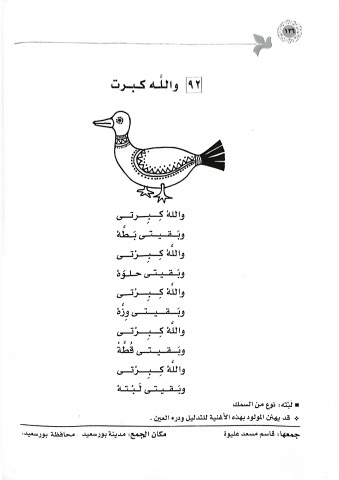 ١٣٦
٩٢ واللَّه كبرت
واللهُ كِـبِـرتى
وبَـقـيـتى بَـطَّهْ
واللهُ كِـبِـرْتى
وبَـقـيـتى حلوَهْ
واللهُ كِـبِـرْتى
وبَـقـيـتى وِزَّهْ
واللهُ كِـبِـرْتى
وبَـقـيـتى قُطَّهْ
واللهُ كِـبِـرْتى
وبَـقـيـتى لَبْتـهْ
■ لبْته: نوع من السمك
❖ قد يهنن المولود بهذه الأغنية للتدليل ودرء العين .
جمعها: قاسم مسعد عليوة مكان الجمع: مدينة بورسعيد - محافظة بورسعيد.